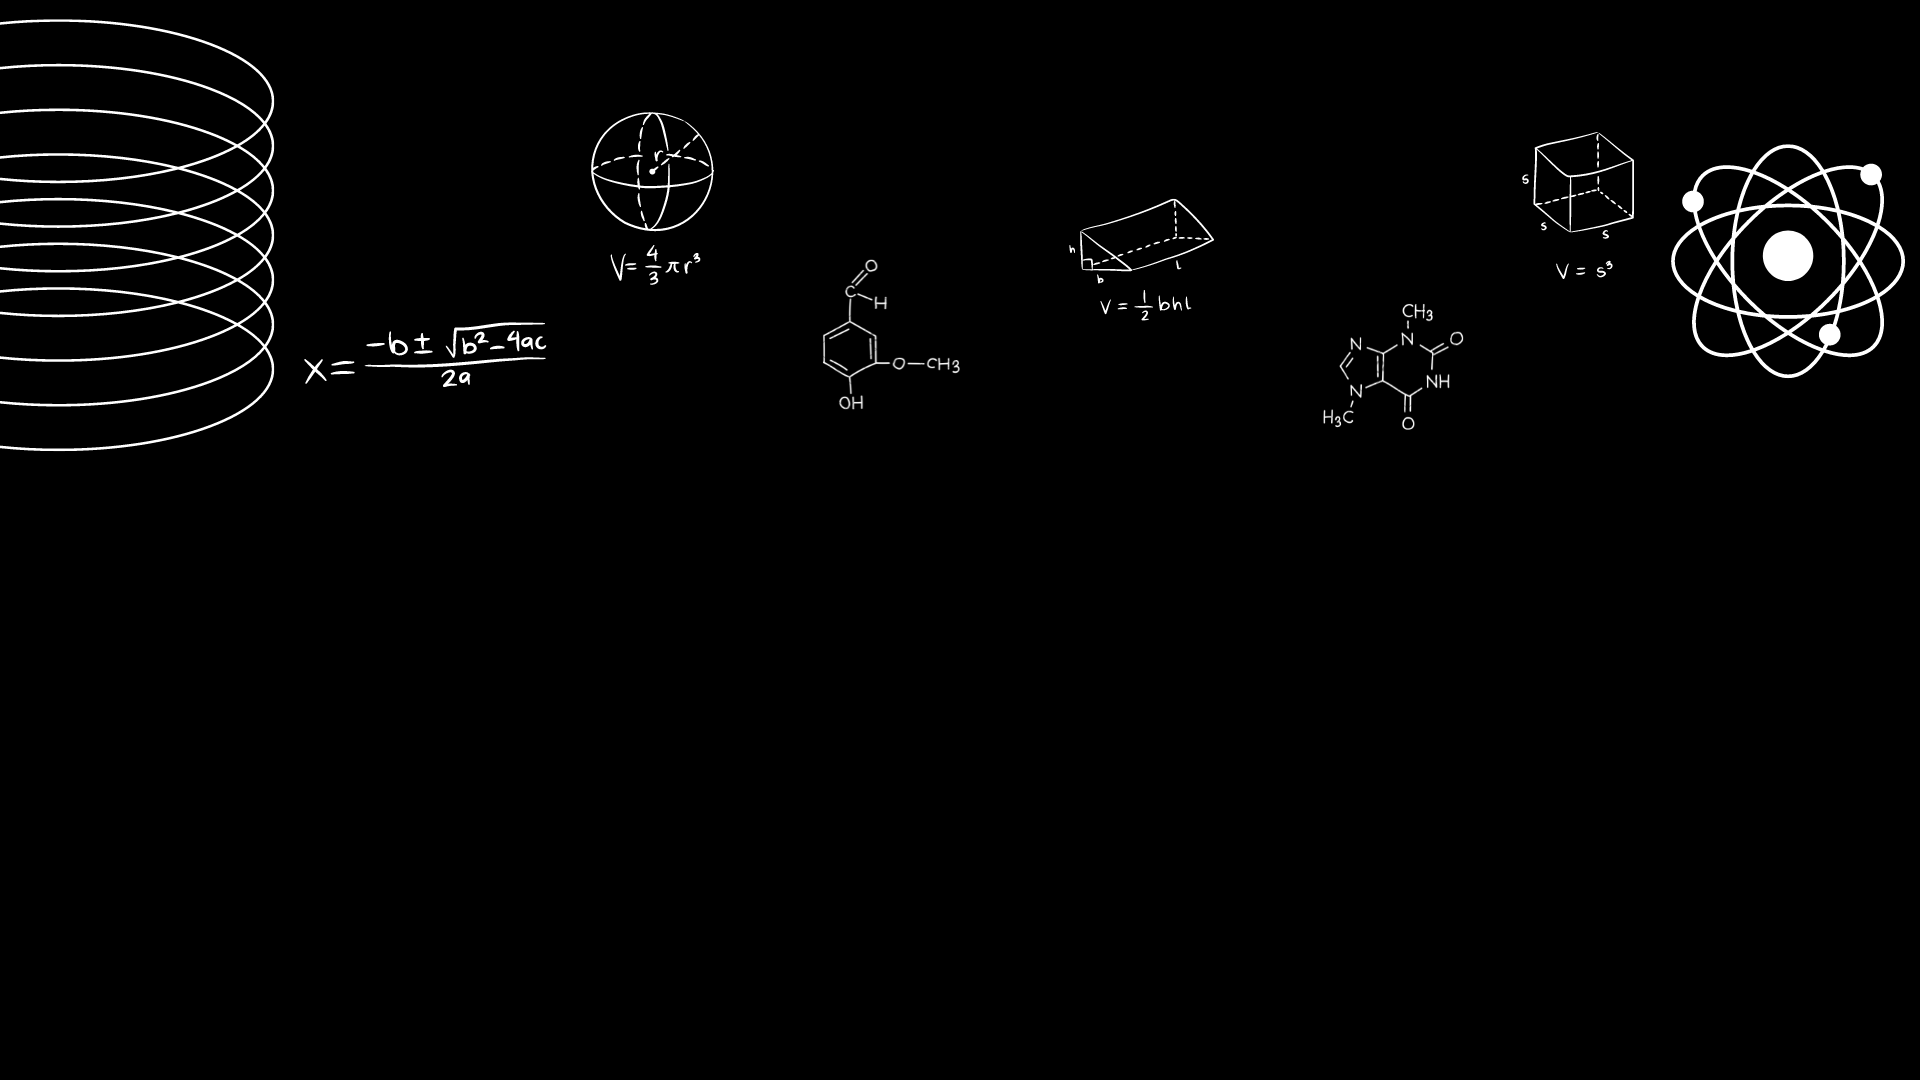 x = -b ± √b² - 4ac
2a
r
V = 4/3 πr³
O
C
H
O
CH3
OH
h
b
l
V = 1/2 bhl
CH3
N
N
O
NH
N
H3C
O
s
s
s
V = s³